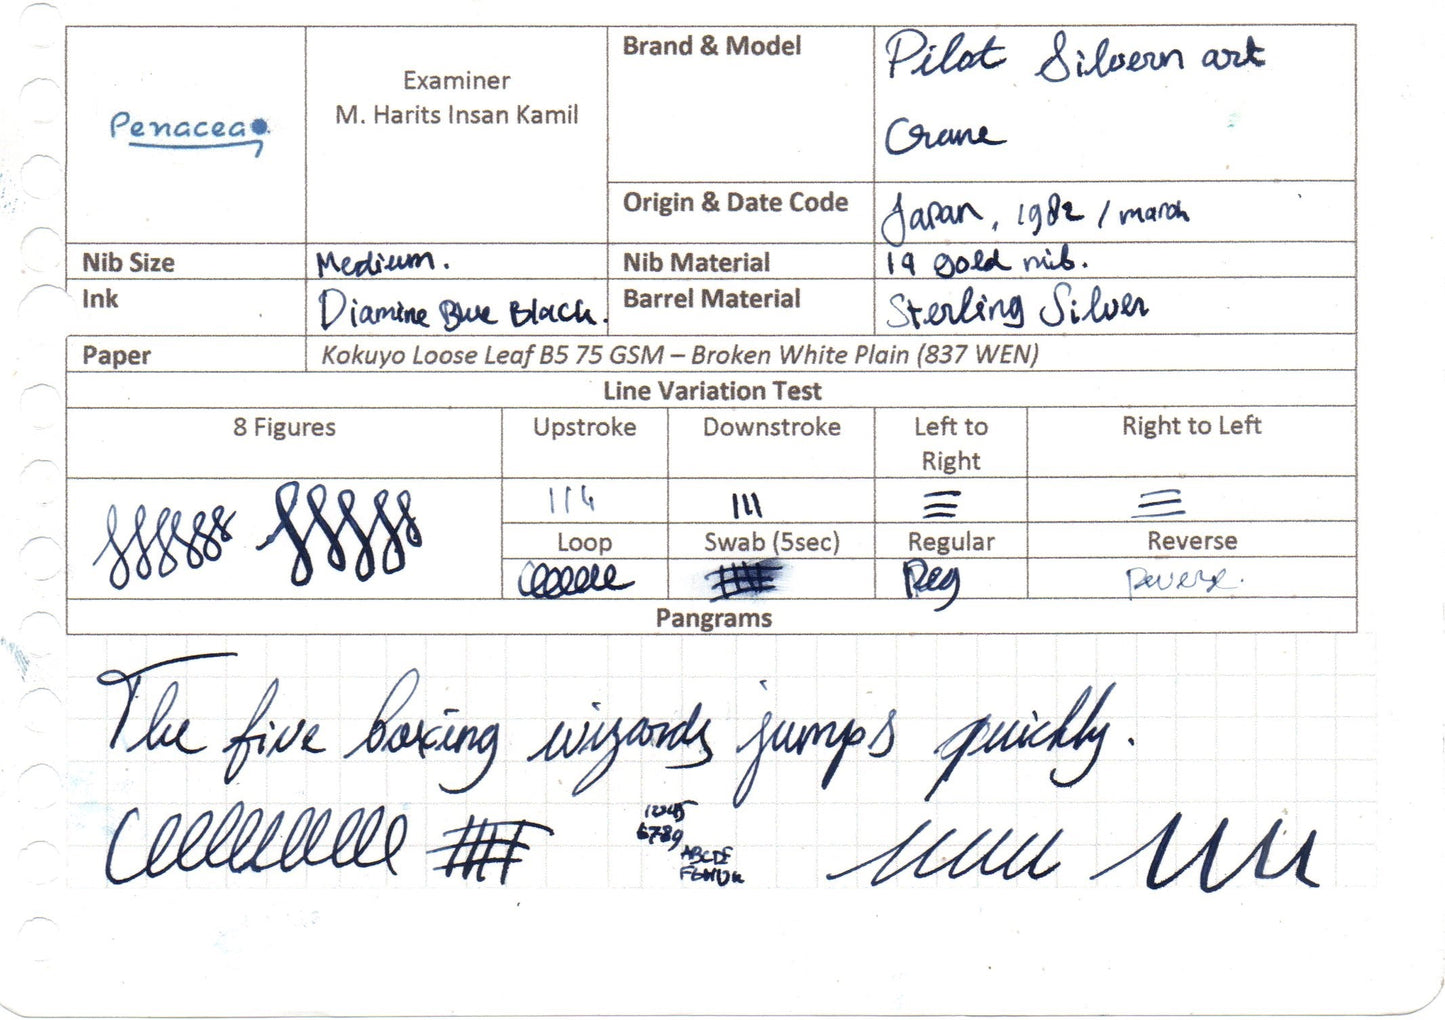 Penacea
Examiner
M. Harits Insan Kamil
Brand & Model
Pilot Silvern art
Crane
Origin & Date Code
Japan, 1982 / march
Nib Size
Medium.
Nib Material
19 gold nib.
Ink
Diamine Blue Black.
Barrel Material
Sterling Silver
Paper
Kokuyo Loose Leaf B5 75 GSM – Broken White Plain (837 WEN)
Line Variation Test
8 Figures
Upstroke
Downstroke
Left to
Right
Right to Left
Loop
Swab (5sec)
Regular
Reverse
Reg
Reverse.
Pangrams
The five boxing wizards jumps quickly.
12345
6789
ABCDE